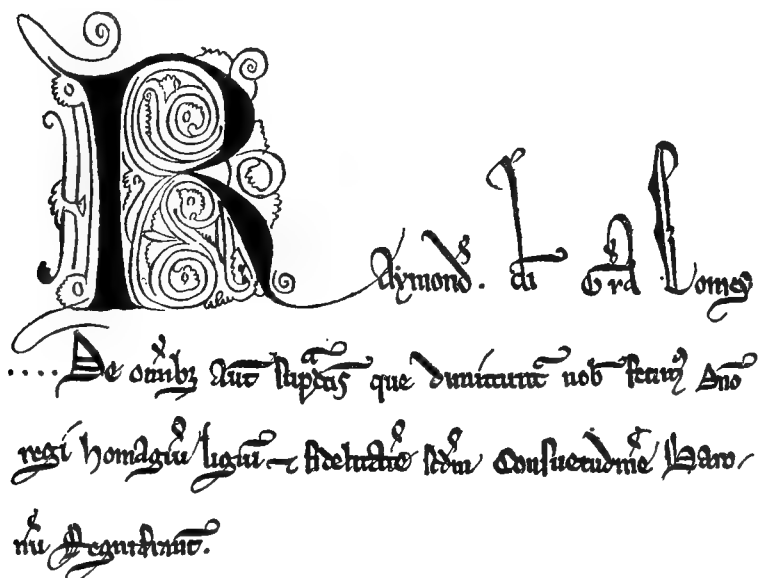 Raymond. di Gra Comes
.... De omibz aut supdcis que dimittunt nob fecimus Dno
regi homagiu ligiu et fidelitate scdm Consuetudine Baro
nu Regni